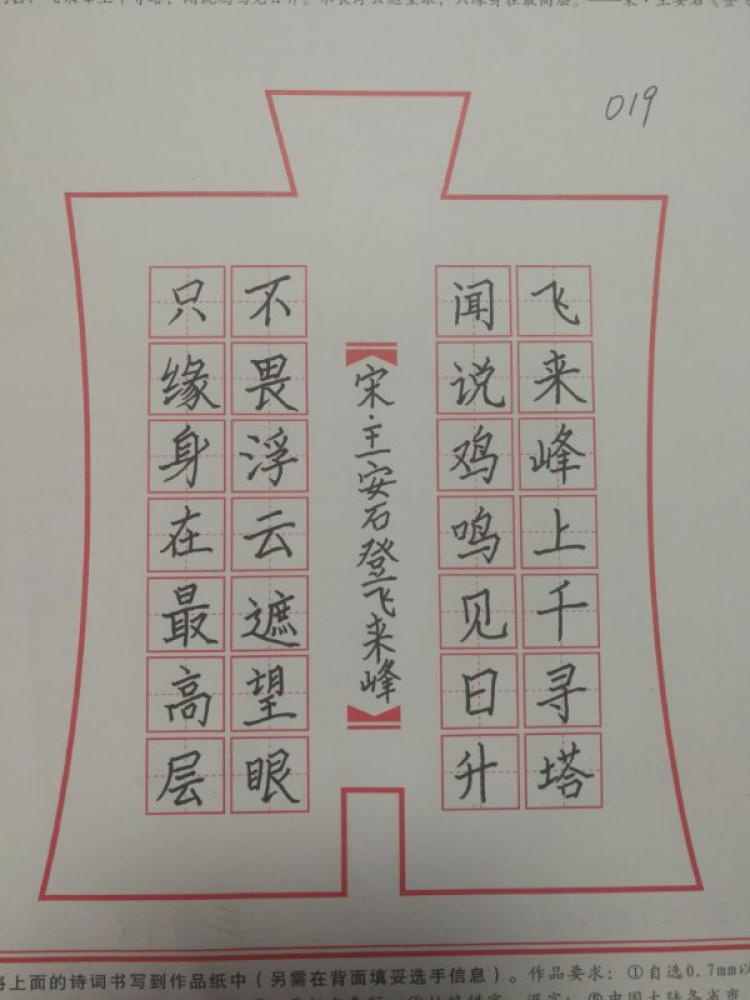 019
飞来峰上千寻塔
闻说鸡鸣见日升
宋·王安石登飞来峰
不畏浮云遮望眼
只缘身在最高层
将上面的诗词书写到作品纸中(另需在背面填妥选手信息)。作品要求:①自选0.7mm以